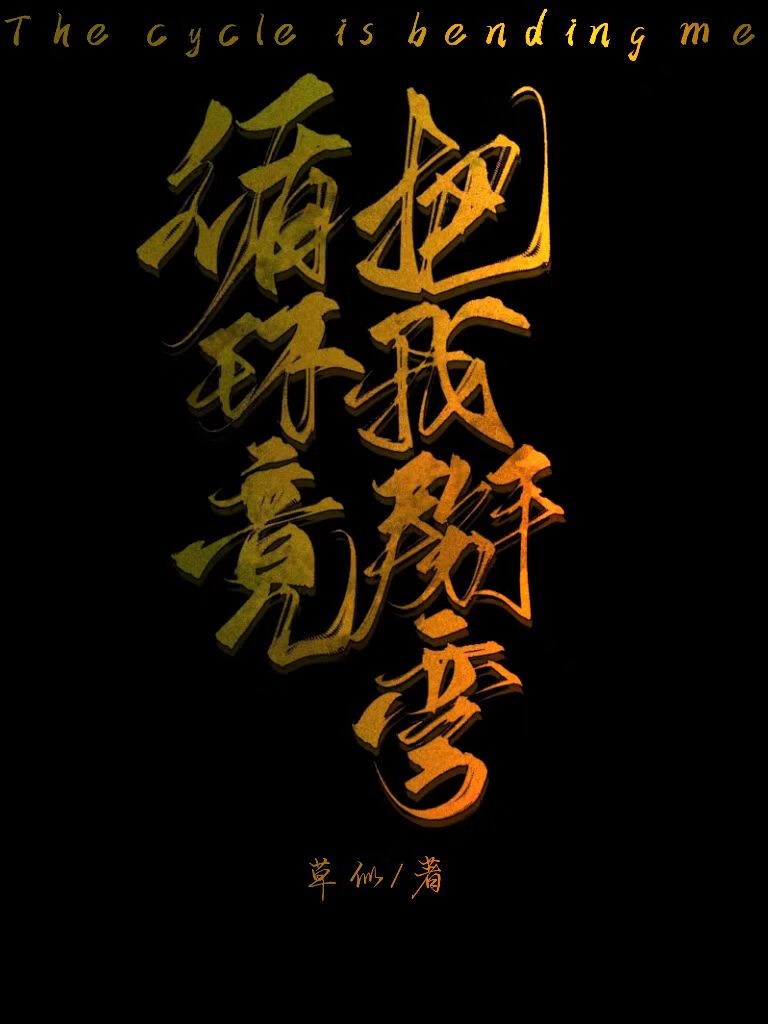 The cycle is bending me
循环竟
把我掰弯
草似/著